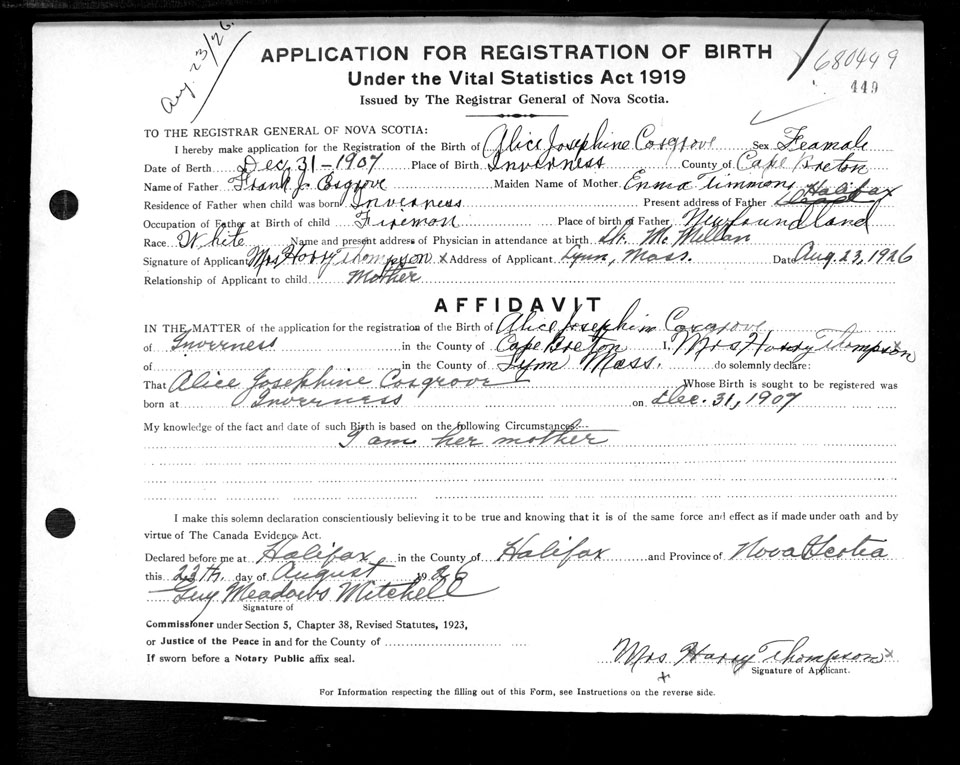 Aug. 23/26.
APPLICATION FOR REGISTRATION OF BIRTH
680449
Under the Vital Statistics Act 1919
449
Issued by The Registrar General of Nova Scotia.
TO THE REGISTRAR GENERAL OF NOVA SCOTIA:
I hereby make application for the Registration of the Birth of Alice Josephine Cosgrove Sex Feamale
Date of Birth Dec, 31-1907 Place of Birth Inverness County of Cape Breton
Name of Father Frank J. Cosgrove Maiden Name of Mother Emma Timmons
Residence of Father when child was born Inverness Present address of Father Halifax
Occupation of Father at Birth of child Fireman Place of birth of Father Newfoundland
Race White Name and present address of Physician in attendance at birth Dr. McMillan
Signature of Applicant Mrs Harry Thompson x Address of Applicant Lynn, Mass. Date Aug. 23, 1926
Relationship of Applicant to child Mother
AFFIDAVIT
IN THE MATTER of the application for the registration of the Birth of Alice Josephin Cosgrove
of Inverness in the County of Cape Breton I, Mrs Harry Thompson x
of in the County of Lynn Mass. do solemnly declare:
That Alice Josephine Cosgrove Whose Birth is sought to be registered was
born at Inverness on Dec. 31, 1907
My knowledge of the fact and date of such Birth is based on the following Circumstances:
I am her mother
I make this solemn declaration conscientiously believing it to be true and knowing that it is of the same force and effect as if made under oath and by
virtue of The Canada Evidence Act.
Declared before me at Halifax in the County of Halifax and Province of Nova Scotia
this day of August 1926
Guy Meadows Mitchell
Signature of
Commissioner under Section 5, Chapter 38, Revised Statutes, 1923,
or Justice of the Peace in and for the County of
If sworn before a Notary Public affix seal.
Mrs Harry Thompson x
x
Signature of Applicant.
For Information respecting the filling out of this Form, see Instructions on the reverse side.